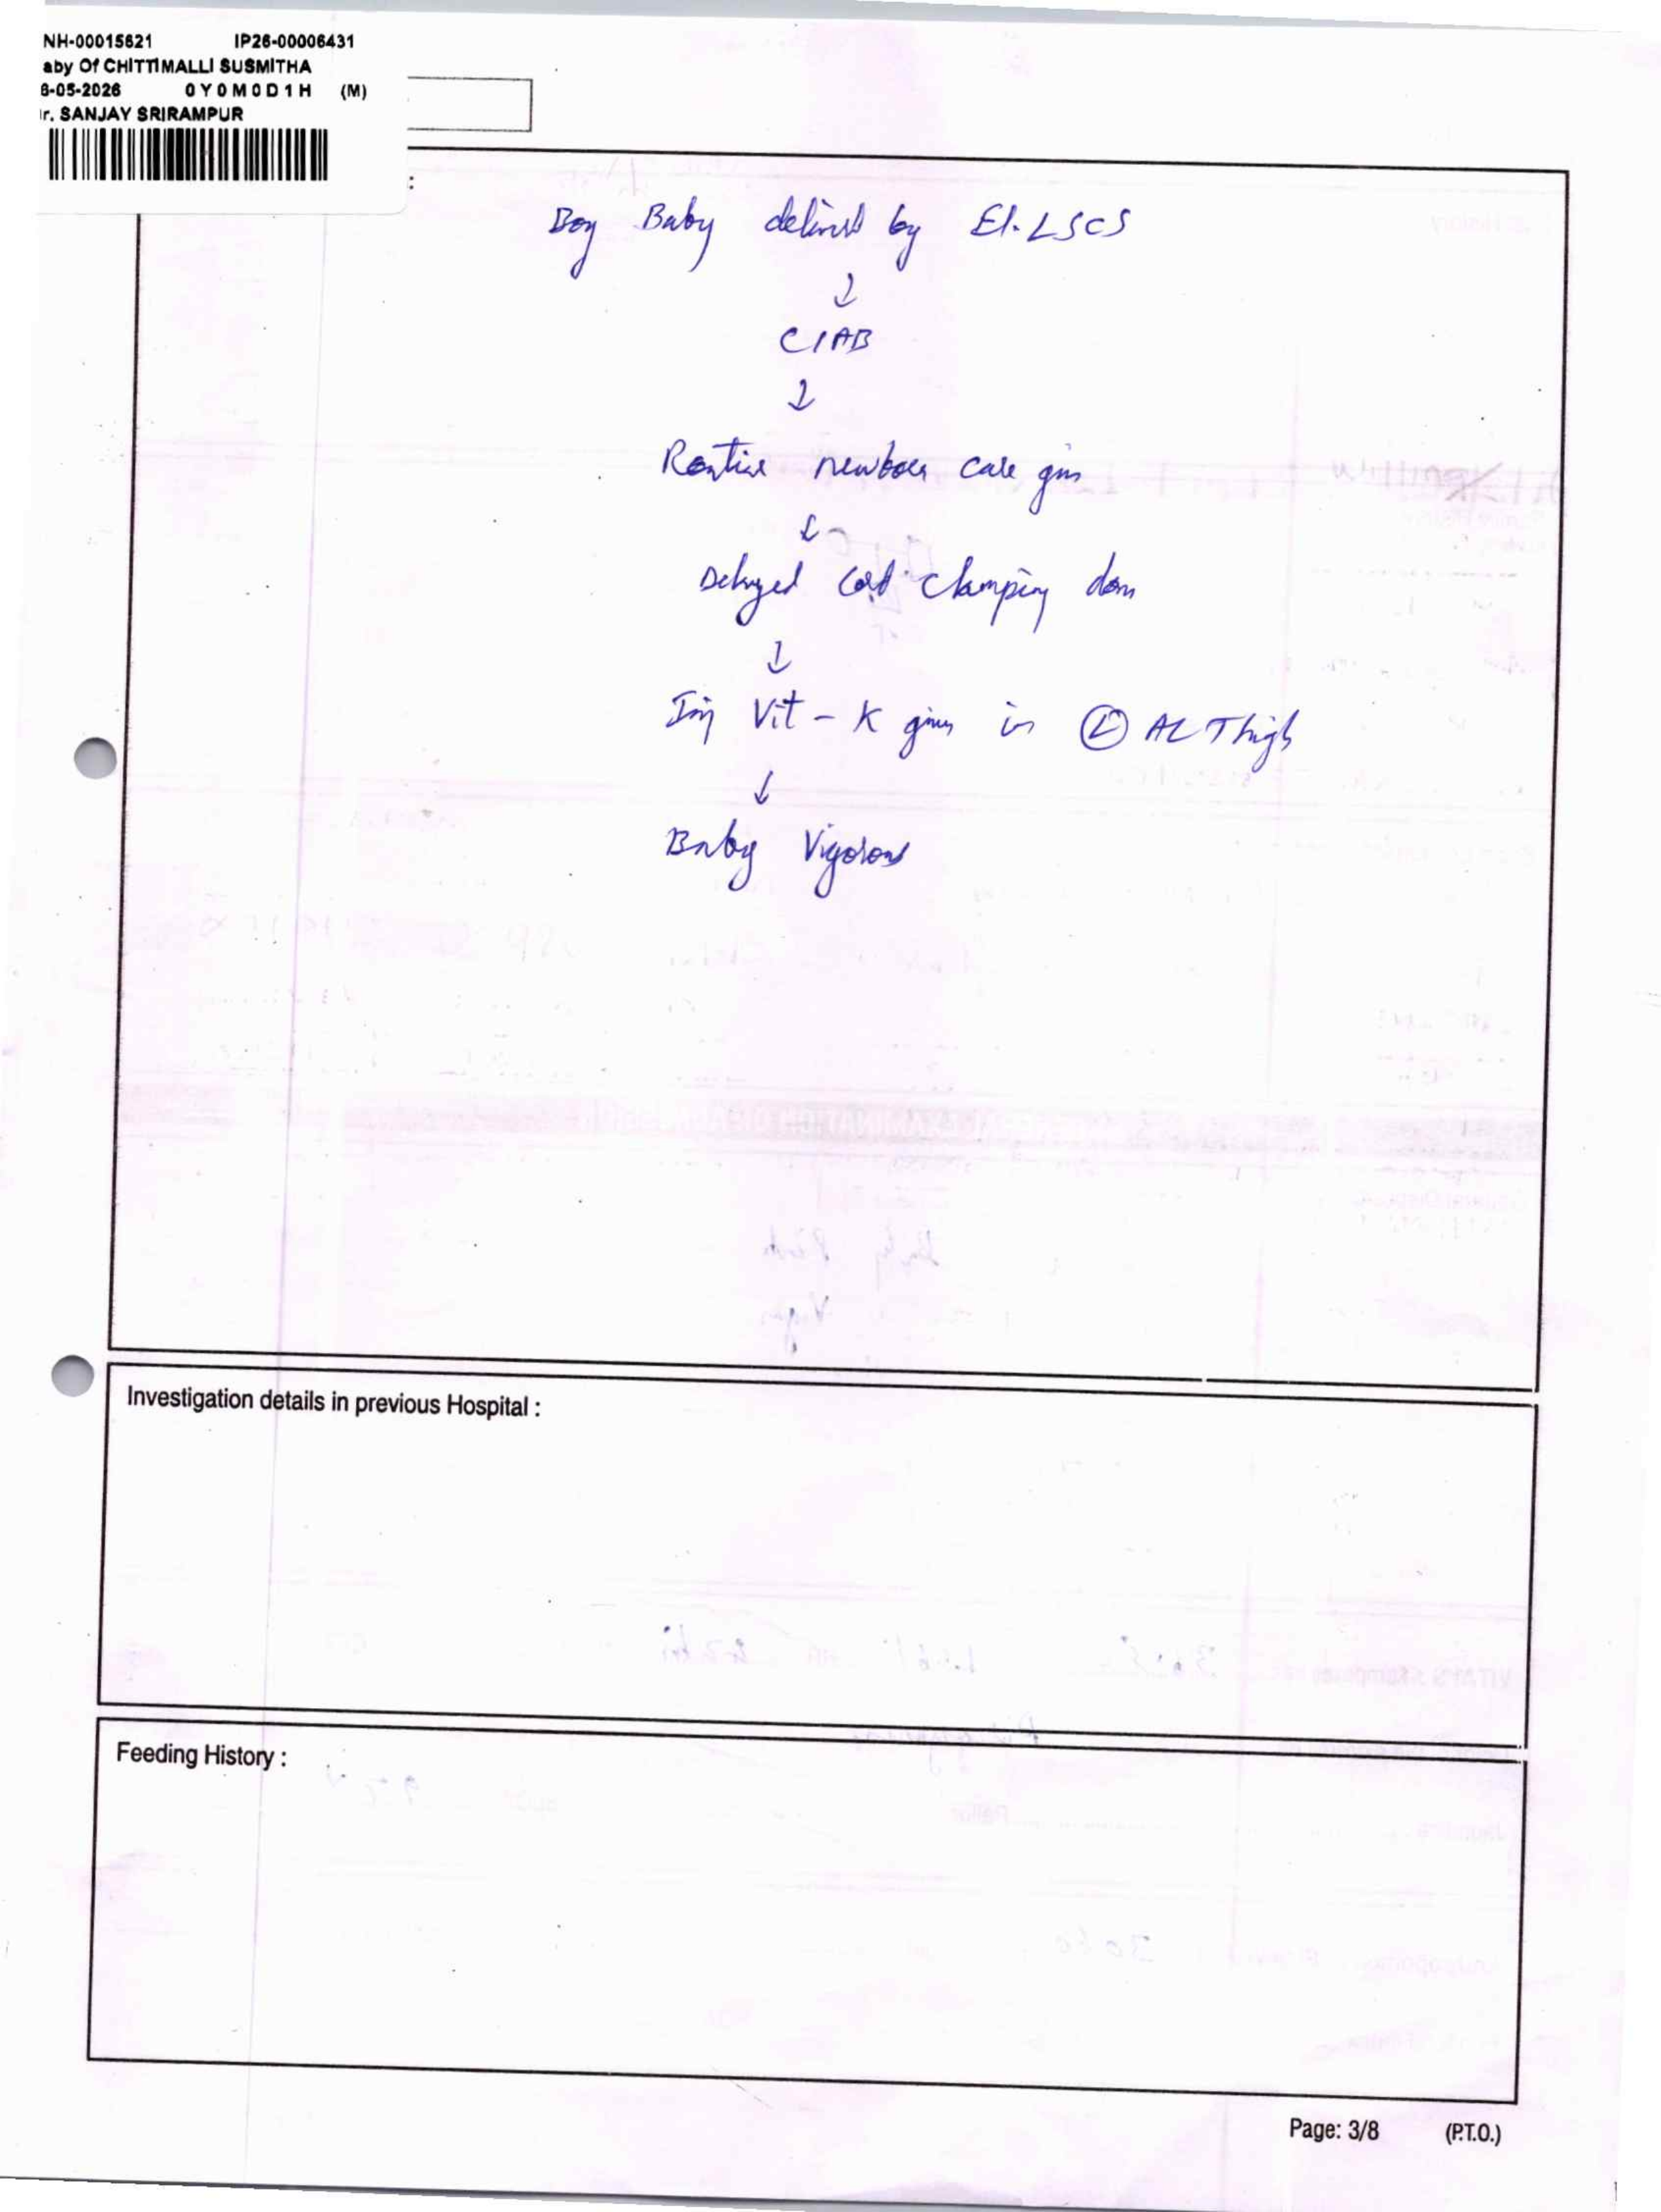 NH-00015621 IP26-00006431
aby Of CHITTIMALLI SUSMITHA
6-05-2026 0Y0M0D1H (M)
r. SANJAY SRIRAMPUR
:
Boy Baby delivered by El. LSCS
↓
CIAB
↓
Routine newborn care given
↓
Delayed cord clamping done
↓
Inj Vit - K given in Ⓛ AL Thigh
↓
Baby Vigorous
Investigation details in previous Hospital :
Feeding History :
Page: 3/8 (P.T.O.)